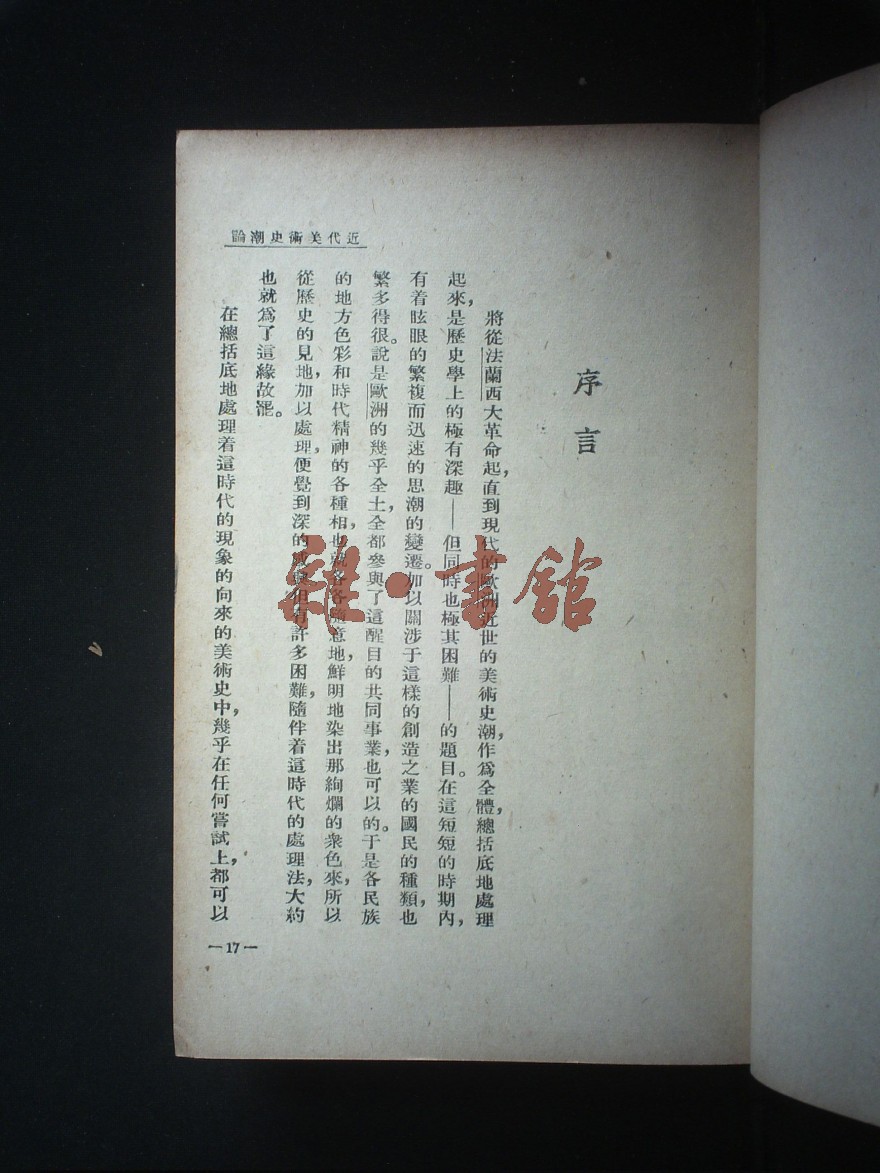 近代美術史潮論
序言
將從法蘭西大革命起，直到現代的歐洲近世的美術史潮，作爲全體，總括底地處理
起來，是歷史學上的極有深趣——但同時也極其困難——的題目。在這短短的時期內，
有着眩眼的繁複而迅速的思潮的變遷。加以關涉于這樣的創造之業的國民的種類，也
繁多得很。說是歐洲的幾乎全土，全都參與了這醒目的共同事業，也可以的。于是各民族
的地方色彩和時代精神的各種相，也就各各隨意地，鮮明地染出那絢爛的衆色來，所以
從歷史的見地，加以處理，便覺到深的但有許多困難，隨伴着這時代的處理法，大約
也就爲了這緣故罷。
在總括底地處理着這時代的現象的向來的美術史中，幾乎在任何嘗試上，都可以
—17—
雜·書館